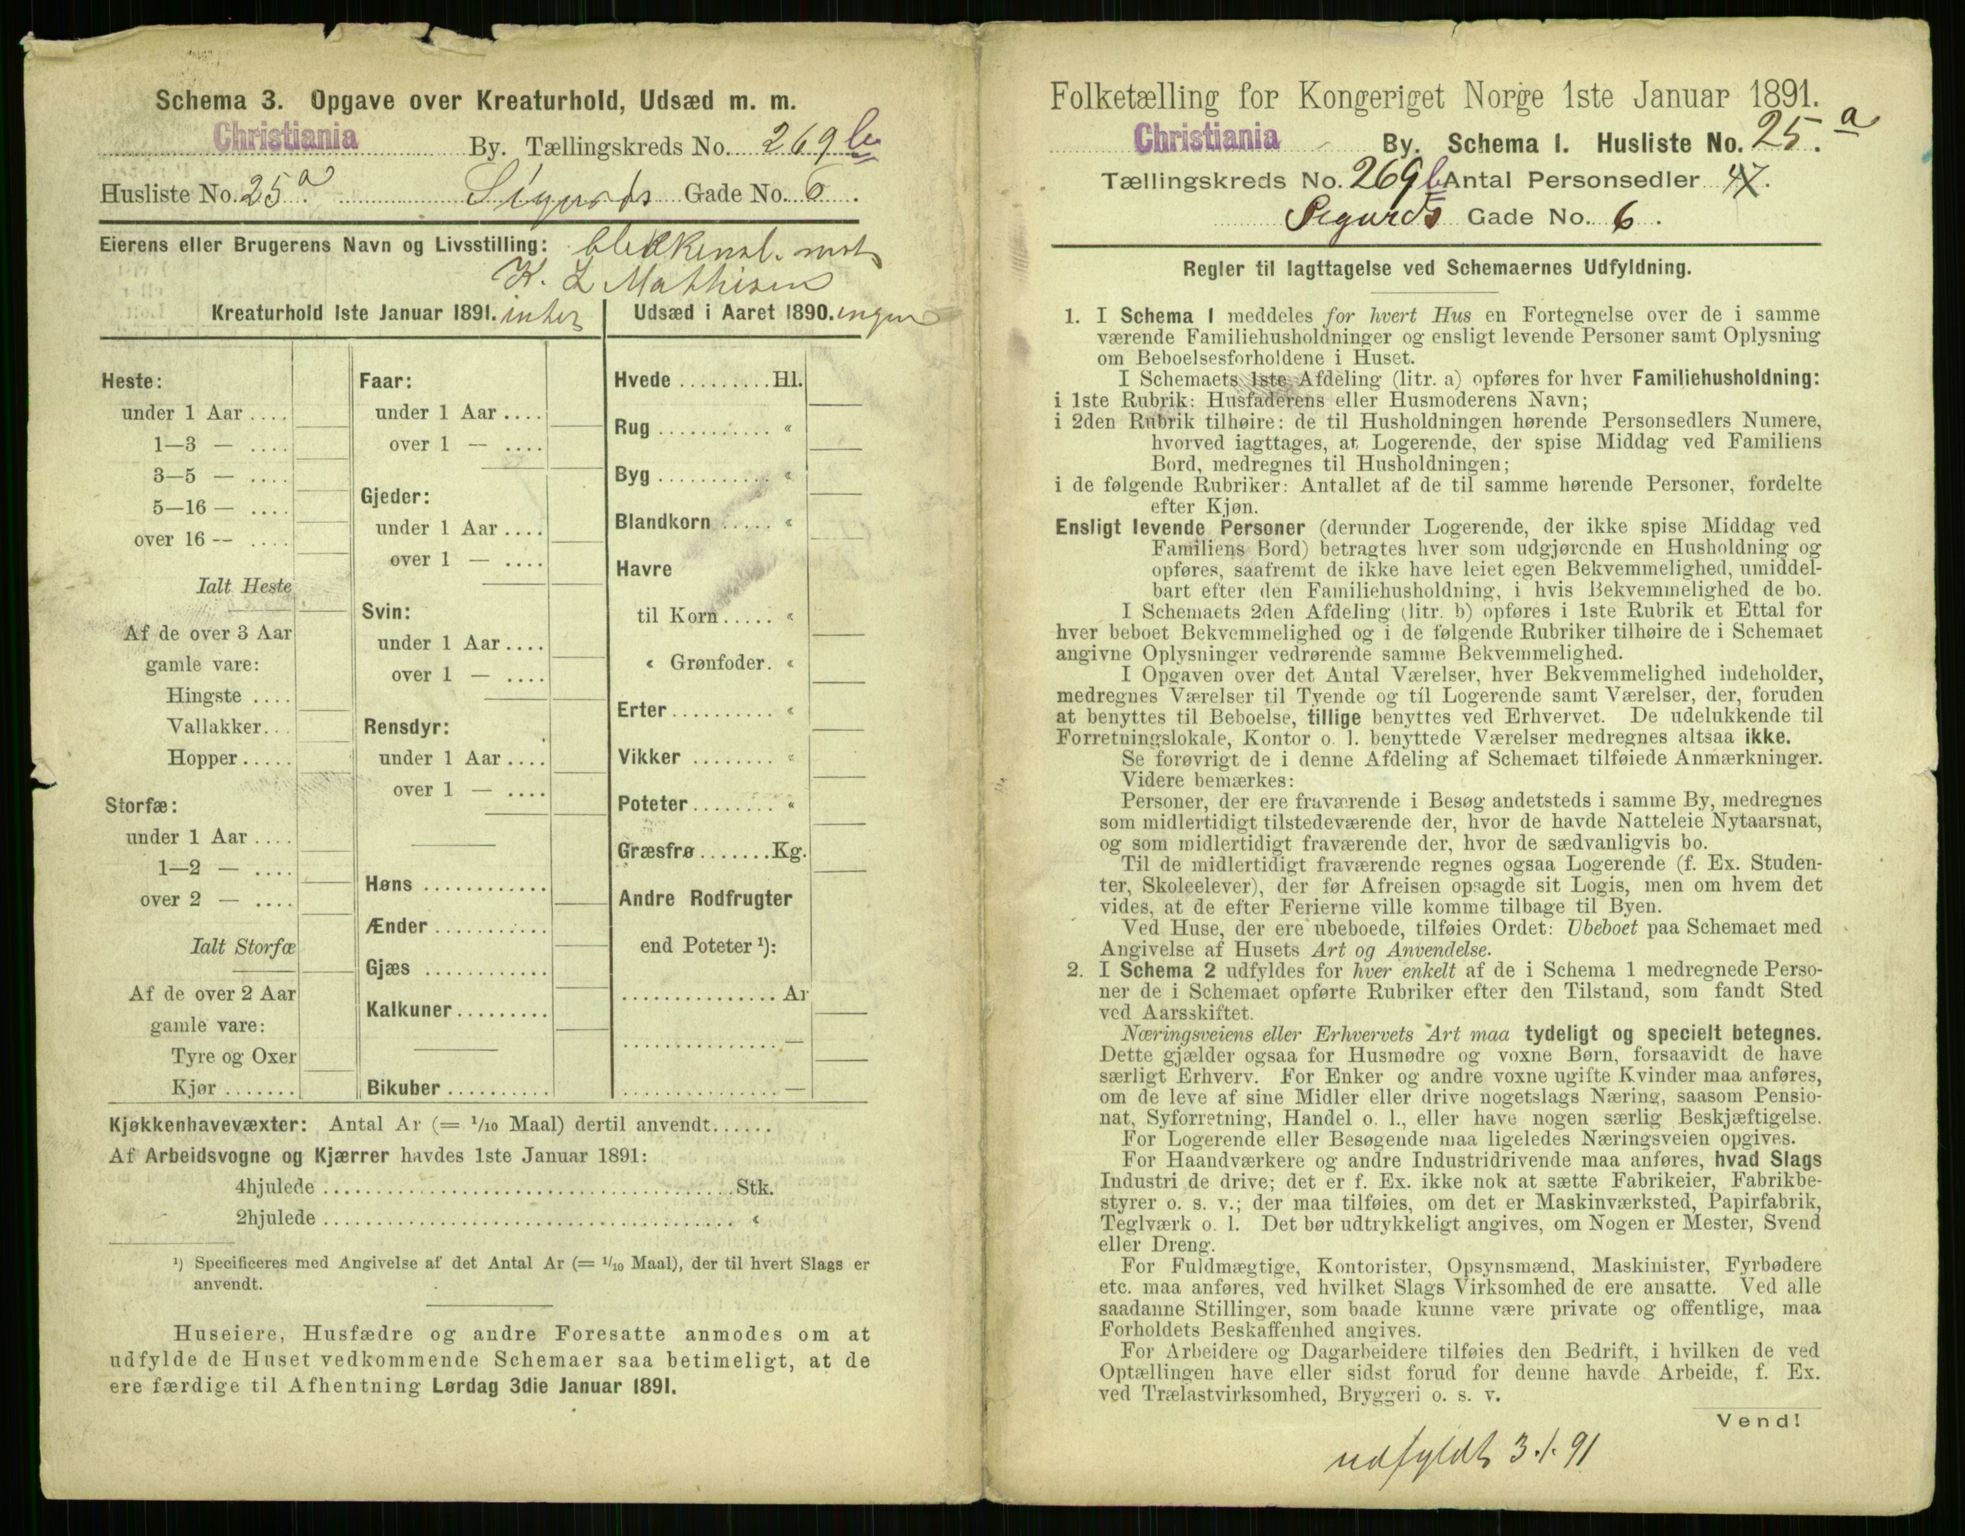 Schema 3. Opgave over Kreaturhold, Udsæd m. m.
Christiania By. Tællingskreds No. 269 b
Husliste No. 25 a Sigurds Gade No. 6.
Eierens eller Brugerens Navn og Livsstilling: Blikkensl. mst
K. L Mathisen
Kreaturhold 1ste Januar 1891. intet
Udsæd i Aaret 1890. ingen
Heste:
under 1 Aar ....
1—3 — ....
3—5 — ....
5—16 — ....
over 16 -- ....
Ialt Heste
Af de over 3 Aar
gamle vare:
Hingste ....
Vallakker...
Hopper.....
Storfæ:
under 1 Aar ....
1—2 — ....
over 2 — ....
Ialt Storfæ
Af de over 2 Aar
gamle vare:
Tyre og Oxer
Kjør .......
Faar:
under 1 Aar ....
over 1 — ....
Gjeder:
under 1 Aar....
over 1 — ....
Svin:
under 1 Aar....
over 1 — ....
Rensdyr:
under 1 Aar....
over 1 — ....
Høns ............
Ænder ...........
Gjæs ............
Kalkuner.........
Bikuber ..........
Hvede .........Hl.
Rug ........... «
Byg ........... «
Blandkorn ..... «
Havre
til Korn..... «
« Grønfoder. «
Erter.......... «
Vikker ........ «
Poteter........ «
Græsfrø.......Kg.
Andre Rodfrugter
end Poteter ¹):
...............Ar
............... —
............... —
Kjøkkenhavevæxter: Antal Ar (= 1/10 Maal) dertil anvendt......
Af Arbeidsvogne og Kjærrer havdes 1ste Januar 1891:
4hjulede ........................................Stk.
2hjulede ........................................ «
¹) Specificeres med Angivelse af det Antal Ar (= 1/10 Maal), der til hvert Slags er
anvendt.
Huseiere, Husfædre og andre Foresatte anmodes om at
udfylde de Huset vedkommende Schemaer saa betimeligt, at de
ere færdige til Afhentning Lørdag 3die Januar 1891.
Folketælling for Kongeriget Norge 1ste Januar 1891.
Christiania By. Schema 1. Husliste No. 25. a
Tællingskreds No. 269 b Antal Personsedler 47.
Sigurds Gade No. 6.
Regler til Iagttagelse ved Schemaernes Udfyldning.
1. I Schema 1 meddeles for hvert Hus en Fortegnelse over de i samme
værende Familiehusholdninger og ensligt levende Personer samt Oplysning
om Beboelsesforholdene i Huset.
I Schemaets 1ste Afdeling (litr. a) opføres for hver Familiehusholdning:
i 1ste Rubrik: Husfaderens eller Husmoderens Navn;
i 2den Rubrik tilhøire: de til Husholdningen hørende Personsedlers Numere,
hvorved iagttages, at Logerende, der spise Middag ved Familiens
Bord, medregnes til Husholdningen;
i de følgende Rubriker: Antallet af de til samme hørende Personer, fordelte
efter Kjøn.
Ensligt levende Personer (derunder Logerende, der ikke spise Middag ved
Familiens Bord) betragtes hver som udgjørende en Husholdning og
opføres, saafremt de ikke have leiet egen Bekvemmelighed, umiddel-
bart efter den Familiehusholdning, i hvis Bekvemmelighed de bo.
I Schemaets 2den Afdeling (litr. b) opføres i 1ste Rubrik et Ettal for
hver beboet Bekvemmelighed og i de følgende Rubriker tilhøire de i Schemaet
angivne Oplysninger vedrørende samme Bekvemmelighed.
I Opgaven over det Antal Værelser, hver Bekvemmelighed indeholder,
medregnes Værelser til Tyende og til Logerende samt Værelser, der, foruden
at benyttes til Beboelse, tillige benyttes ved Erhvervet. De udelukkende til
Forretningslokale, Kontor o. l. benyttede Værelser medregnes altsaa ikke.
Se forøvrigt de i denne Afdeling af Schemaet tilføiede Anmærkninger.
Videre bemærkes:
Personer, der ere fraværende i Besøg andetsteds i samme By, medregnes
som midlertidigt tilstedeværende der, hvor de havde Natteleie Nytaarsnat,
og som midlertidigt fraværende der, hvor de sædvanligvis bo.
Til de midlertidigt fraværende regnes ogsaa Logerende (f. Ex. Studen-
ter, Skoleelever), der før Afreisen opsagde sit Logis, men om hvem det
vides, at de efter Ferierne ville komme tilbage til Byen.
Ved Huse, der ere ubeboede, tilføies Ordet: Ubeboet paa Schemaet med
Angivelse af Husets Art og Anvendelse.
2. I Schema 2 udfyldes for hver enkelt af de i Schema 1 medregnede Perso-
ner de i Schemaet opførte Rubriker efter den Tilstand, som fandt Sted
ved Aarsskiftet.
Næringsveiens eller Erhvervets Art maa tydeligt og specielt betegnes.
Dette gjælder ogsaa for Husmødre og voxne Børn, forsaavidt de have
særligt Erhverv. For Enker og andre voxne ugifte Kvinder maa anføres,
om de leve af sine Midler eller drive nogetslags Næring, saasom Pensio-
nat, Syforretning, Handel o. l., eller have nogen særlig Beskjæftigelse.
For Logerende eller Besøgende maa ligeledes Næringsveien opgives.
For Haandværkere og andre Industridrivende maa anføres, hvad Slags
Industri de drive; det er f. Ex. ikke nok at sætte Fabrikeier, Fabrikbe-
styrer o. s. v.; der maa tilføies, om det er Maskinværksted, Papirfabrik,
Teglværk o. l. Det bør udtrykkeligt angives, om Nogen er Mester, Svend
eller Dreng.
For Fuldmægtige, Kontorister, Opsynsmænd, Maskinister, Fyrbødere
etc. maa anføres, ved hvilket Slags Virksomhed de ere ansatte. Ved alle
saadanne Stillinger, som baade kunne være private og offentlige, maa
Forholdets Beskaffenhed angives.
For Arbeidere og Dagarbeidere tilføies den Bedrift, i hvilken de ved
Optællingen have eller sidst forud for denne havde Arbeide, f. Ex.
ved Trælastvirksomhed, Bryggeri o. s. v.
Vend!
udfyldt 3.1.91